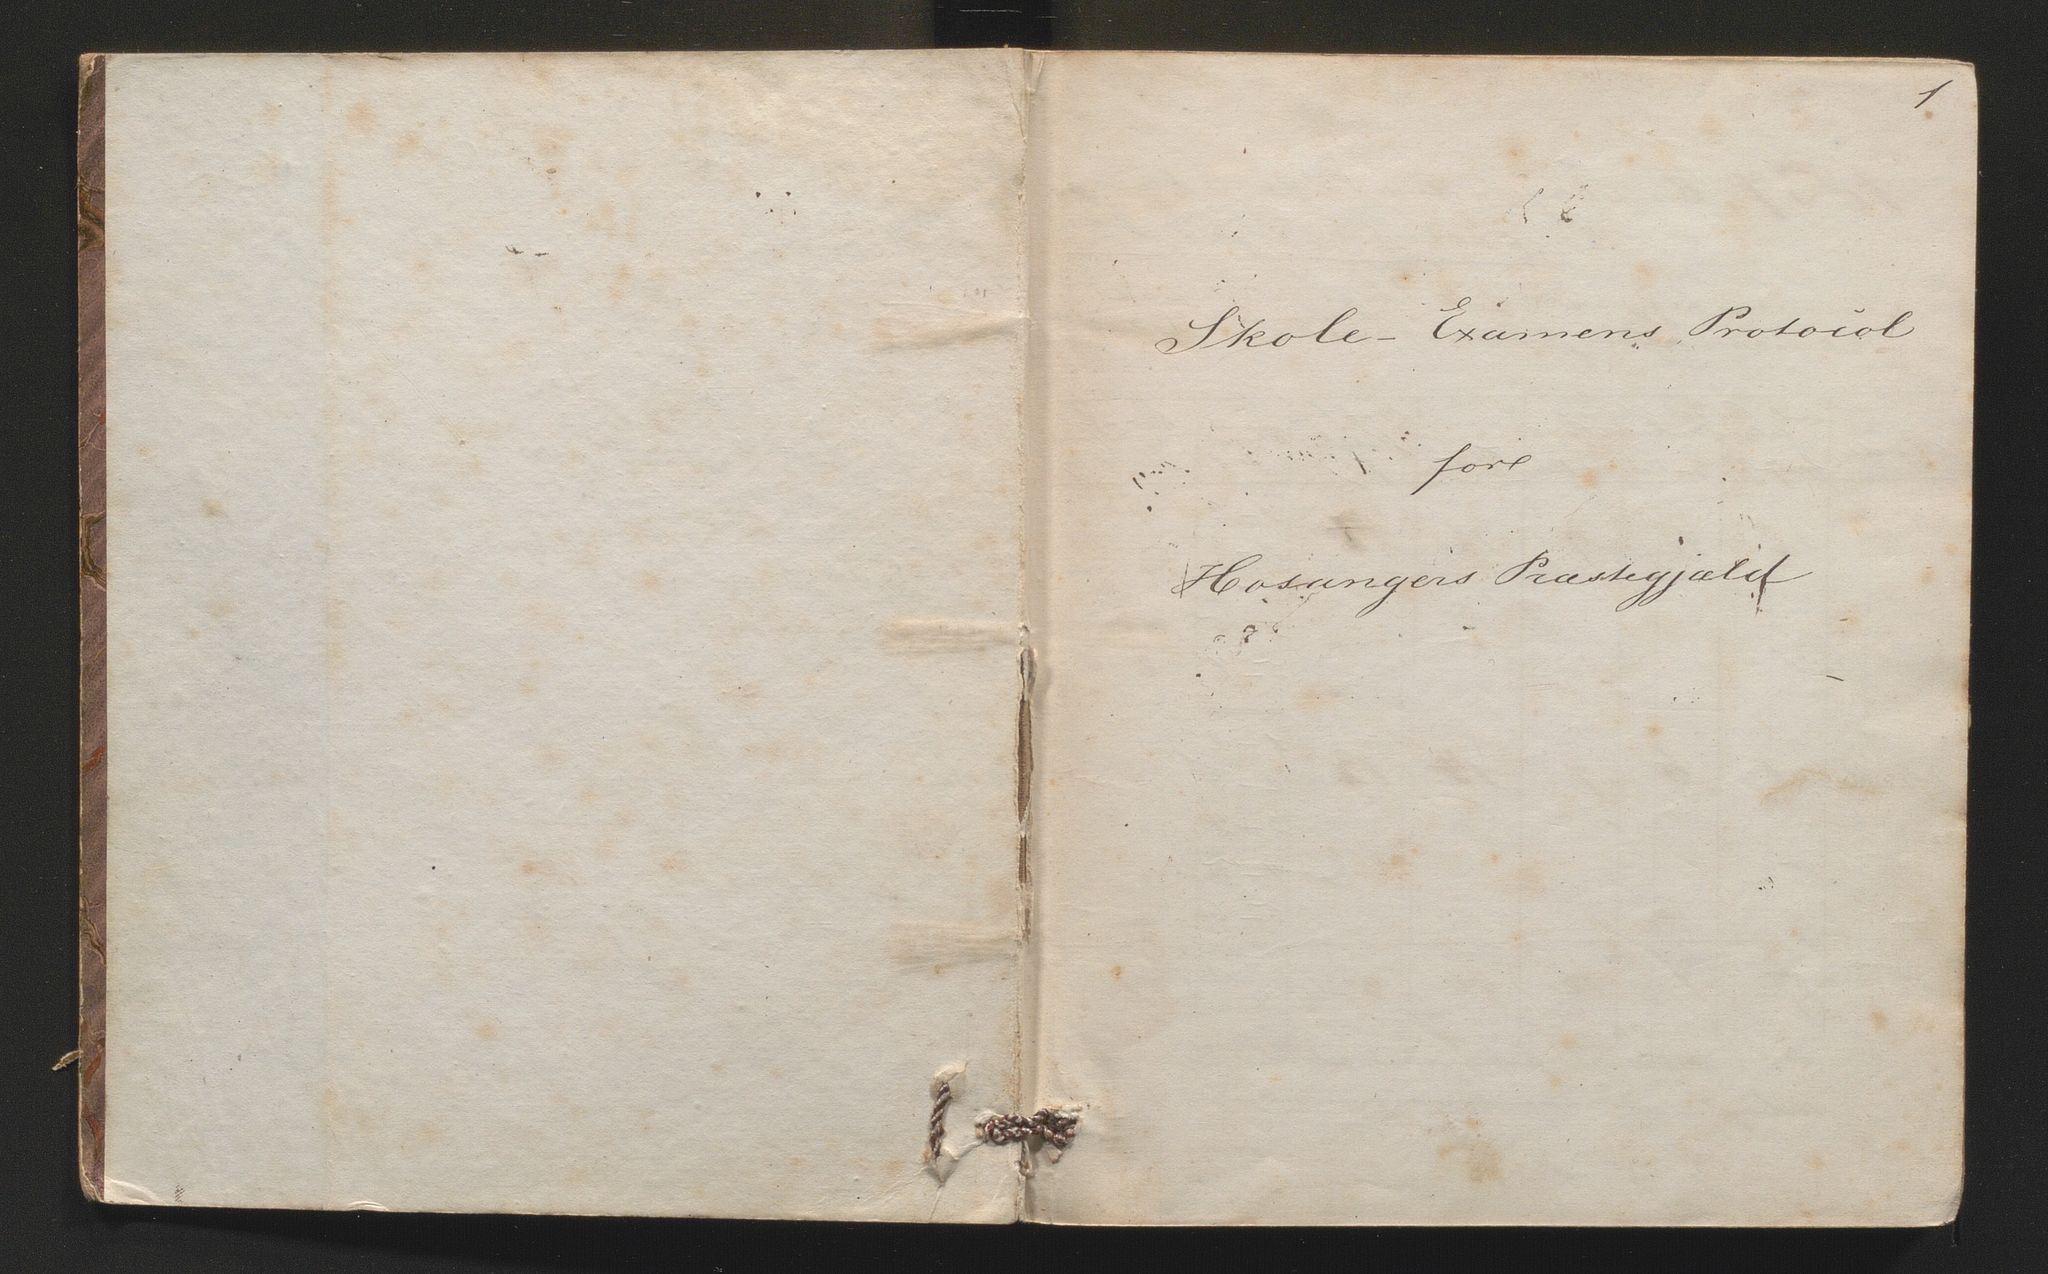 1
Skole-Examens Protocol
for
Hosangers Præstegjæld